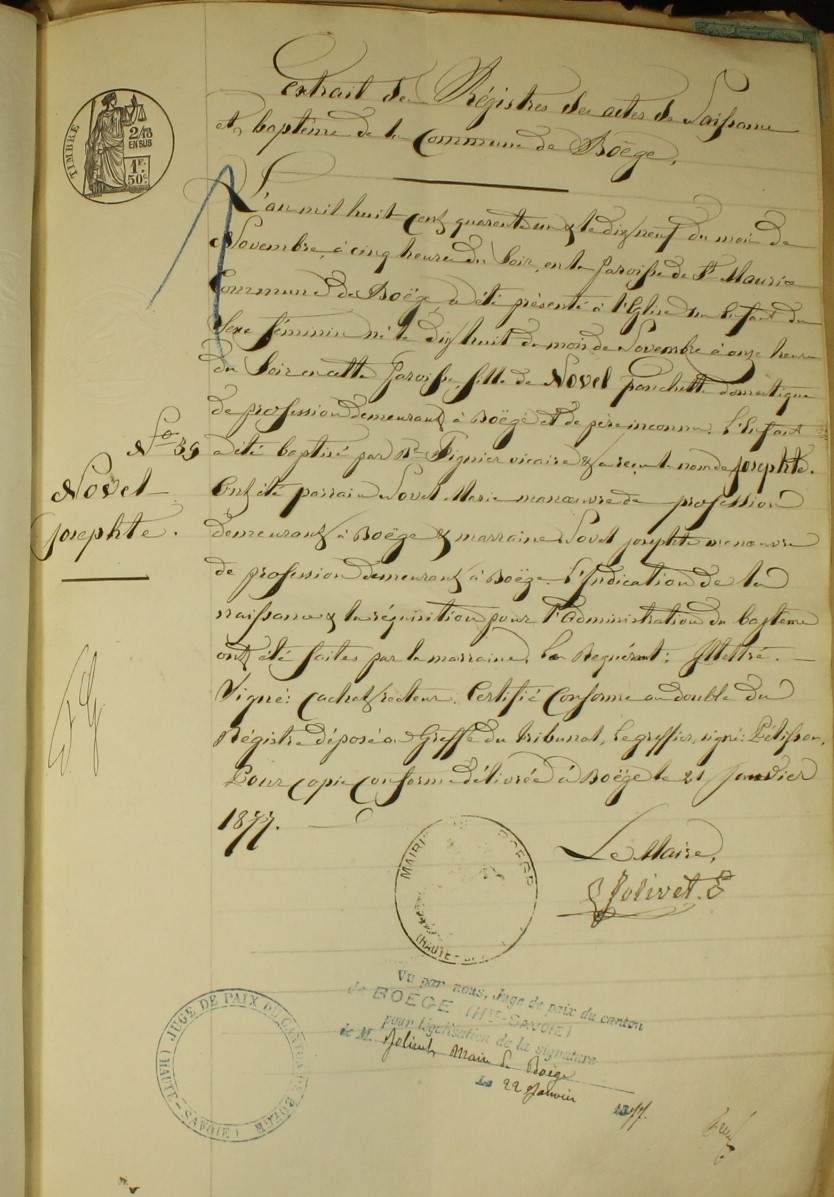 TIMBRE
2/10
EN SUS
1F.
50c
Extrait des Régistres des actes de Naissance
et baptême de la Commune de Boëge.
L'an mil huit cent quarante un & le dix neuf du mois de
Novembre, à cinq heures du Soir, en la Paroisse de St Maurice
Commune de Boëge, a été présenté à l'Eglise un Enfant du
Sexe féminin né le dix huit du mois de Novembre à onze heures
du Soir en cette Paroisse, fille de Novel Panchette domestique
de profession demeurant à Boëge et de père inconnu. L'Enfant
a été baptisé par Rd Pignier vicaire & a reçu le nom de Josephte.
Ont été parrain Novel Marie manœuvre de profession
demeurant à Boëge & marraine Novel Josephte manœuvre
de profession demeurant à Boëge. L'Indication de la
naissance & la réquisition pour l'administration du baptême
ont été faites par la marraine. Le Requérant: Illettré. —
Signé: Cachat recteur. Certifié Conforme au double du
Régistre déposé au Greffe du tribunal, le greffier, signé: Pétisson.
Pour Copie Conforme délivrée à Boëge le 21 Janvier
1877.
No 59
Novel
Josephte.
Le Maire,
Jolivet
MAIRIE DE BOEGE
(HAUTE-SAVOIE)
Vu par nous, Juge de paix du canton
de BOEGE (Hte-SAVOIE)
pour légalisation de la signature
de M. Jolivet, Maire de Boëge
Le 22 Janvier 1877.
JUGE DE PAIX DU CANTON DE BOEGE
(HAUTE-SAVOIE)